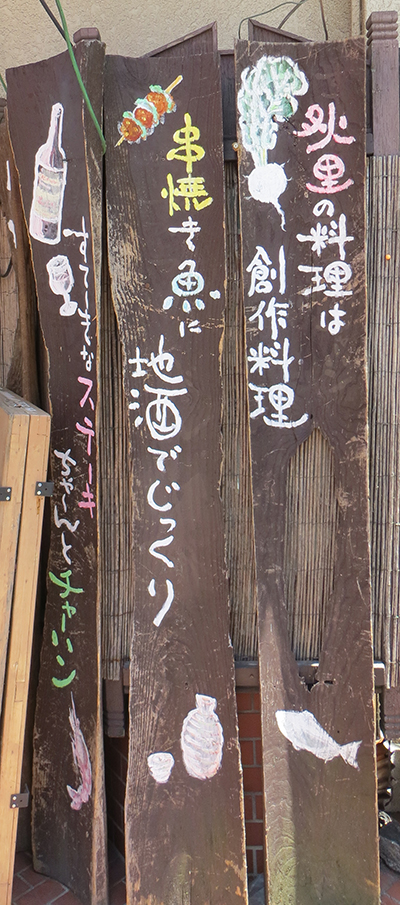 里の料理は
創作料理
串焼き魚に
地酒でじっくり
すてーきなステーキ
ちゃんとチャーハン